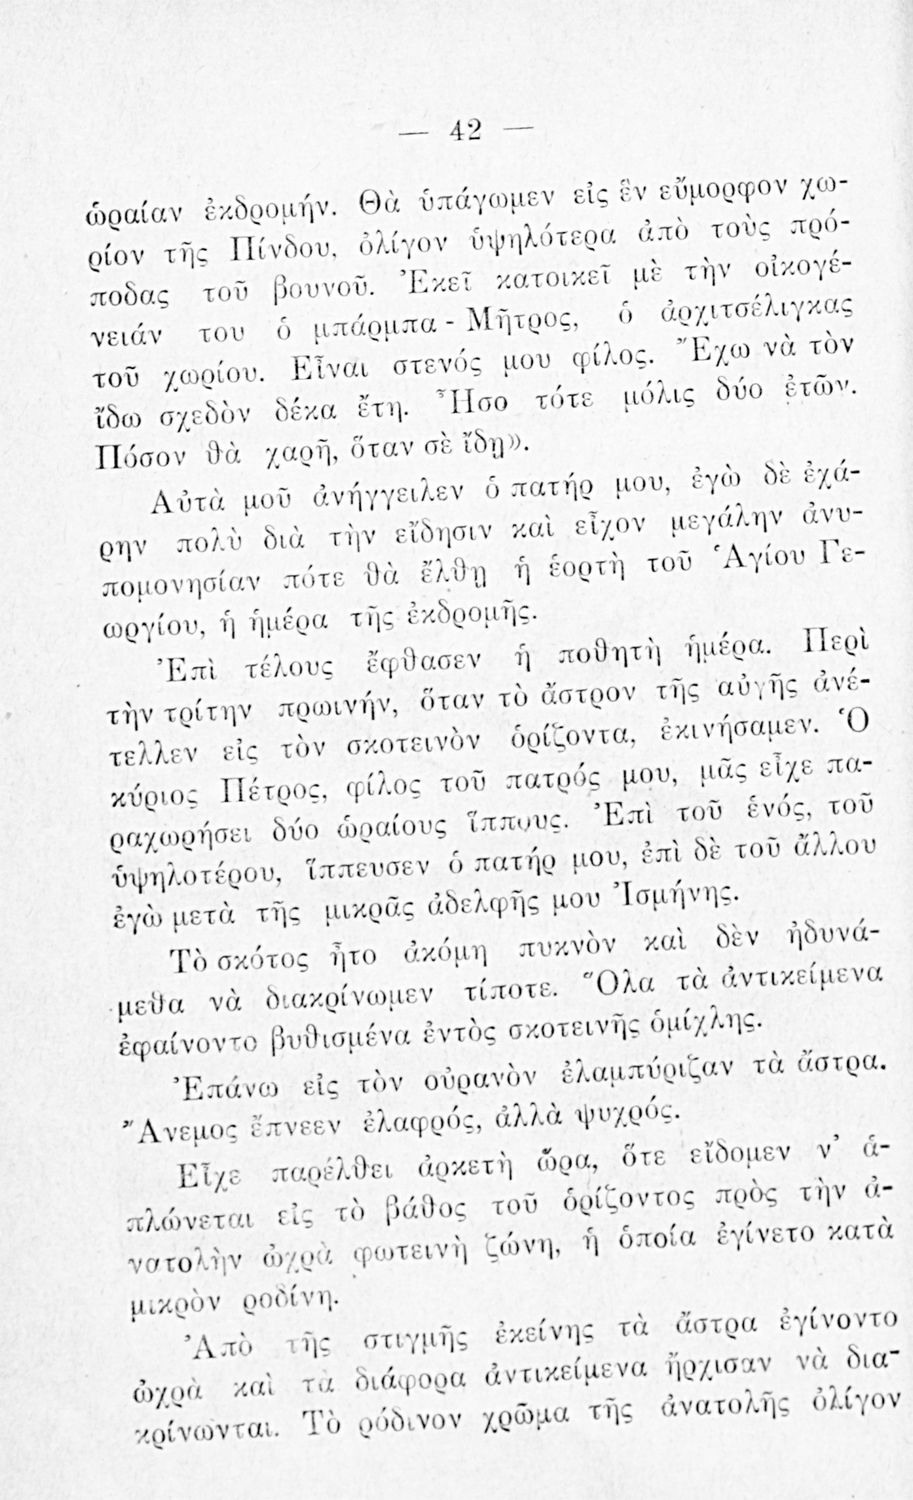 — 42 —
ὡραίαν ἐκδρομήν. Θὰ ὑπάγωμεν εἰς ἓν εὔμορφον χω-
ρίον τῆς Πίνδου, ὀλίγον ὑψηλότερα ἀπὸ τοὺς πρό-
ποδας τοῦ βουνοῦ. Ἐκεῖ κατοικεῖ μὲ τὴν οἰκογέ-
νειάν του ὁ μπάρμπα - Μῆτρος, ὁ ἀρχιτσέλιγκας
τοῦ χωρίου. Εἶναι στενός μου φίλος. Ἔχω νὰ τὸν
ἴδω σχεδὸν δέκα ἔτη. Ἦσο τότε μόλις δύο ἐτῶν.
Πόσον θὰ χαρῆ, ὅταν σὲ ἴδῃ».
Αὐτὰ μοῦ ἀνήγγειλεν ὁ πατήρ μου, ἐγὼ δὲ ἐχά-
ρην πολὺ διὰ τὴν εἴδησιν καὶ εἶχον μεγάλην ἀνυ-
πομονησίαν πότε θὰ ἔλθῃ ἡ ἑορτὴ τοῦ Ἁγίου Γε-
ωργίου, ἡ ἡμέρα τῆς ἐκδρομῆς.
Ἐπὶ τέλους ἔφθασεν ἡ ποθητὴ ἡμέρα. Περὶ
τὴν τρίτην πρωινήν, ὅταν τὸ ἄστρον τῆς αὐγῆς ἀνέ-
τελλεν εἰς τὸν σκοτεινὸν ὁρίζοντα, ἐκινήσαμεν. Ὁ
κύριος Πέτρος, φίλος τοῦ πατρός μου, μᾶς εἶχε πα-
ραχωρήσει δύο ὡραίους ἵππους. Ἐπὶ τοῦ ἑνός, τοῦ
ὑψηλοτέρου, ἵππευσεν ὁ πατήρ μου, ἐπὶ δὲ τοῦ ἄλλου
ἐγὼ μετὰ τῆς μικρᾶς ἀδελφῆς μου Ἰσμήνης.
Τὸ σκότος ἦτο ἀκόμη πυκνὸν καὶ δὲν ἠδυνά-
μεθα νὰ διακρίνωμεν τίποτε. Ὅλα τὰ ἀντικείμενα
ἐφαίνοντο βυθισμένα ἐντὸς σκοτεινῆς ὁμίχλης.
Ἐπάνω εἰς τὸν οὐρανὸν ἐλαμπύριζαν τὰ ἄστρα.
Ἄνεμος ἔπνεεν ἐλαφρός, ἀλλὰ ψυχρός.
Εἶχε παρέλθει ἀρκετὴ ὥρα, ὅτε εἴδομεν ν' ἁ-
πλώνεται εἰς τὸ βάθος τοῦ ὁρίζοντος πρὸς τὴν ἀ-
νατολὴν ὠχρὰ φωτεινὴ ζώνη, ἡ ὁποία ἐγίνετο κατὰ
μικρὸν ροδίνη.
Ἀπὸ τῆς στιγμῆς ἐκείνης τὰ ἄστρα ἐγίνοντο
ὠχρὰ καὶ τὰ διάφορα ἀντικείμενα ἤρχισαν νὰ δια-
κρίνωνται. Τὸ ρόδινον χρῶμα τῆς ἀνατολῆς ὀλίγον